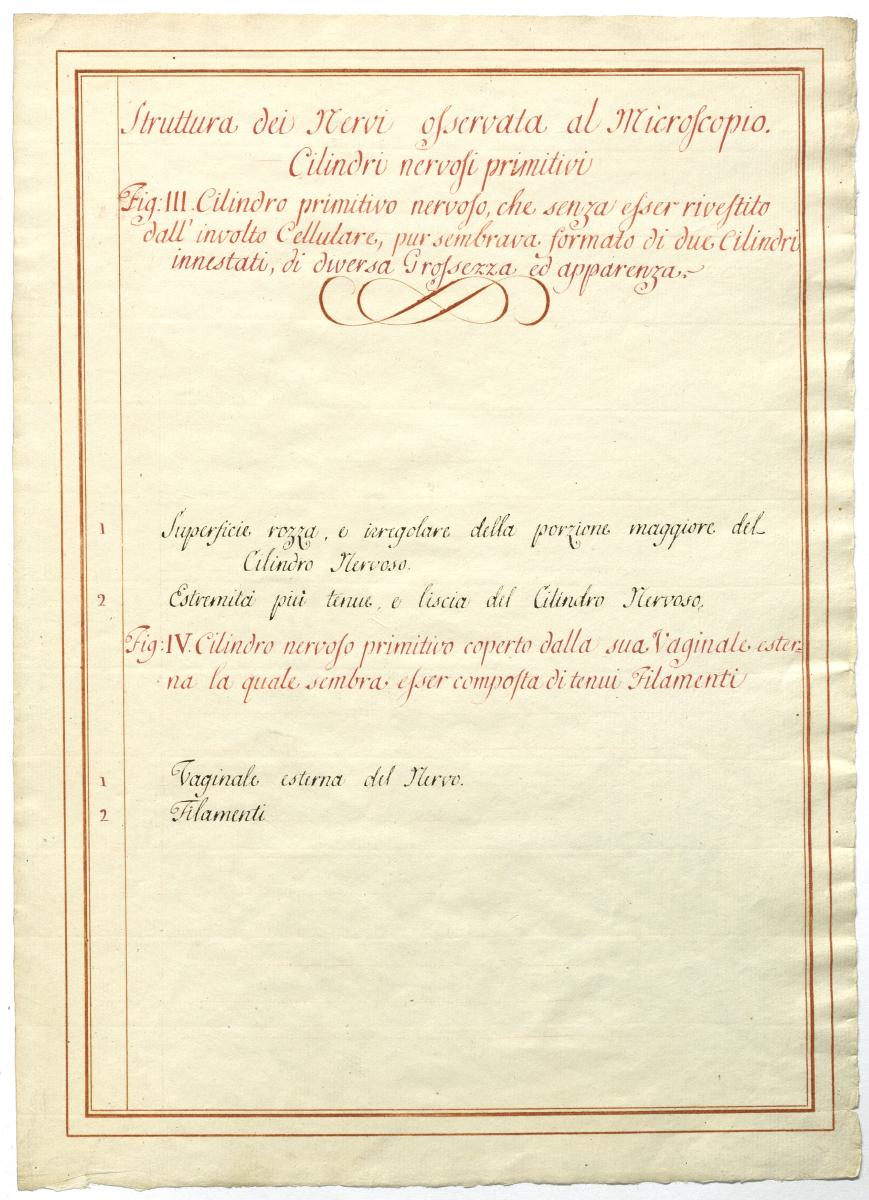 Struttura dei Nervi oſservata al Microſcopio.
Cilindri nervoſi primitivi
Fig: III. Cilindro primitivo nervoſo, che senza eſser riveſtito
dall' involto Cellulare, pur sembrava formato di due Cilindri
innestati, di diversa Groſsezza ed apparenza.
1 Superficie rozza, e irregolare della porzione maggiore del
Cilindro Nervoso.
2 Estremità più tenue, e liscia del Cilindro Nervoso,
Fig: IV. Cilindro nervoſo primitivo coperto dalla sua Vaginale ester-
na la quale sembra eſser compoſta di tenui Filamenti
1 Vaginale esterna del Nervo.
2 Filamenti